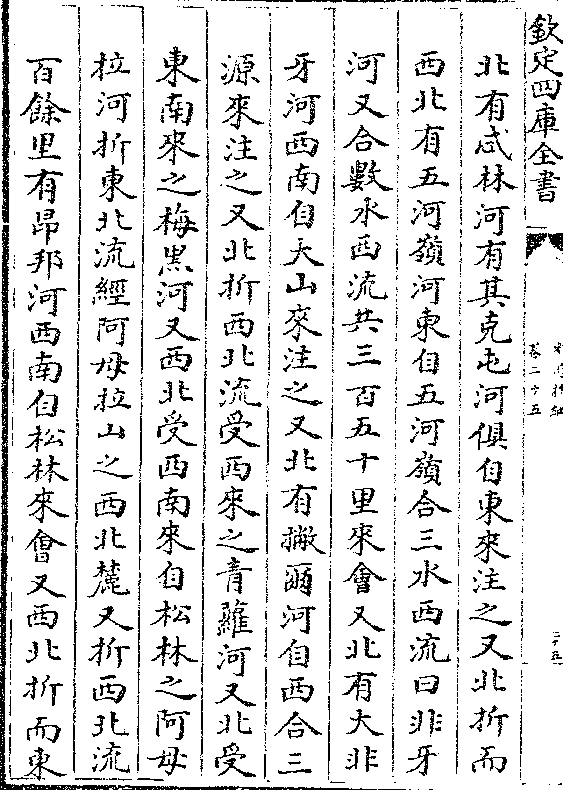 欽定四庫全書
卷二十五
二十五
北有忒林河有其克屯河俱自東來注之又北折而
西北有五河嶺河東自五河嶺合三水西流曰非牙
河又合數水西流共三百五十里來會又北有大非
牙河西南自大山來注之又北有撇爾河自西合三
源來注之又北折西北流受西來之青羅河又北受
東南來之梅黑河又西北受西南來自松林之阿母
拉河折東北流經阿母拉山之西北麓又折西北流
百餘里有昂邦河西南自松林來會又西北折而東